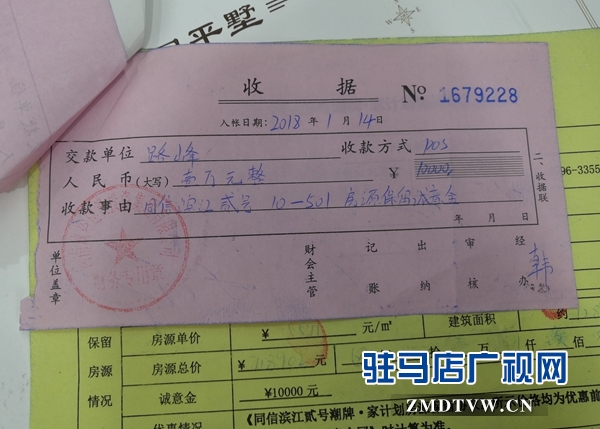 平墅
收 据 No 1679228
入帐日期: 2018 年 1 月 14 日
交款单位 路峰 收款方式 pos
人民币(大写) 壹万元整 ¥ 10000
收款事由 同信滨江贰号 10-501 房源保留诚意金
年 月 日
二、收据联
96-3355
单位盖章 财务专用章 财会主管 记账 出纳 审核 经办 韩
保留房源情况 房源单价 ¥ 元/㎡ 建筑面积 约
房源总价 ¥ 元 拾 万 仟 佰
诚意金 ¥10000元
优惠情况 《同信滨江贰号潮牌·家计划
格均为优惠前
驻马店广视网
ZMDTVW.CN